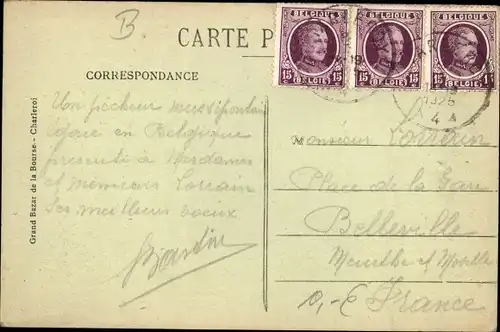 B.
CARTE P
CORRESPONDANCE
BELGIQUE
15 15
BELGIE
BELGIQUE
15 15
BELGIE
BELGIQUE
15 15
BELGIE
1926
4
Grand Bazar de la Bourse - Charleroi
Un pécheur mussipontain
égaré en Belgique
présente à Mesdames
et Messieurs Lorrain
ses meilleurs voeux
Monsieur Lorrain
Place de la Gare
Belleville
Meurthe et Moselle
France